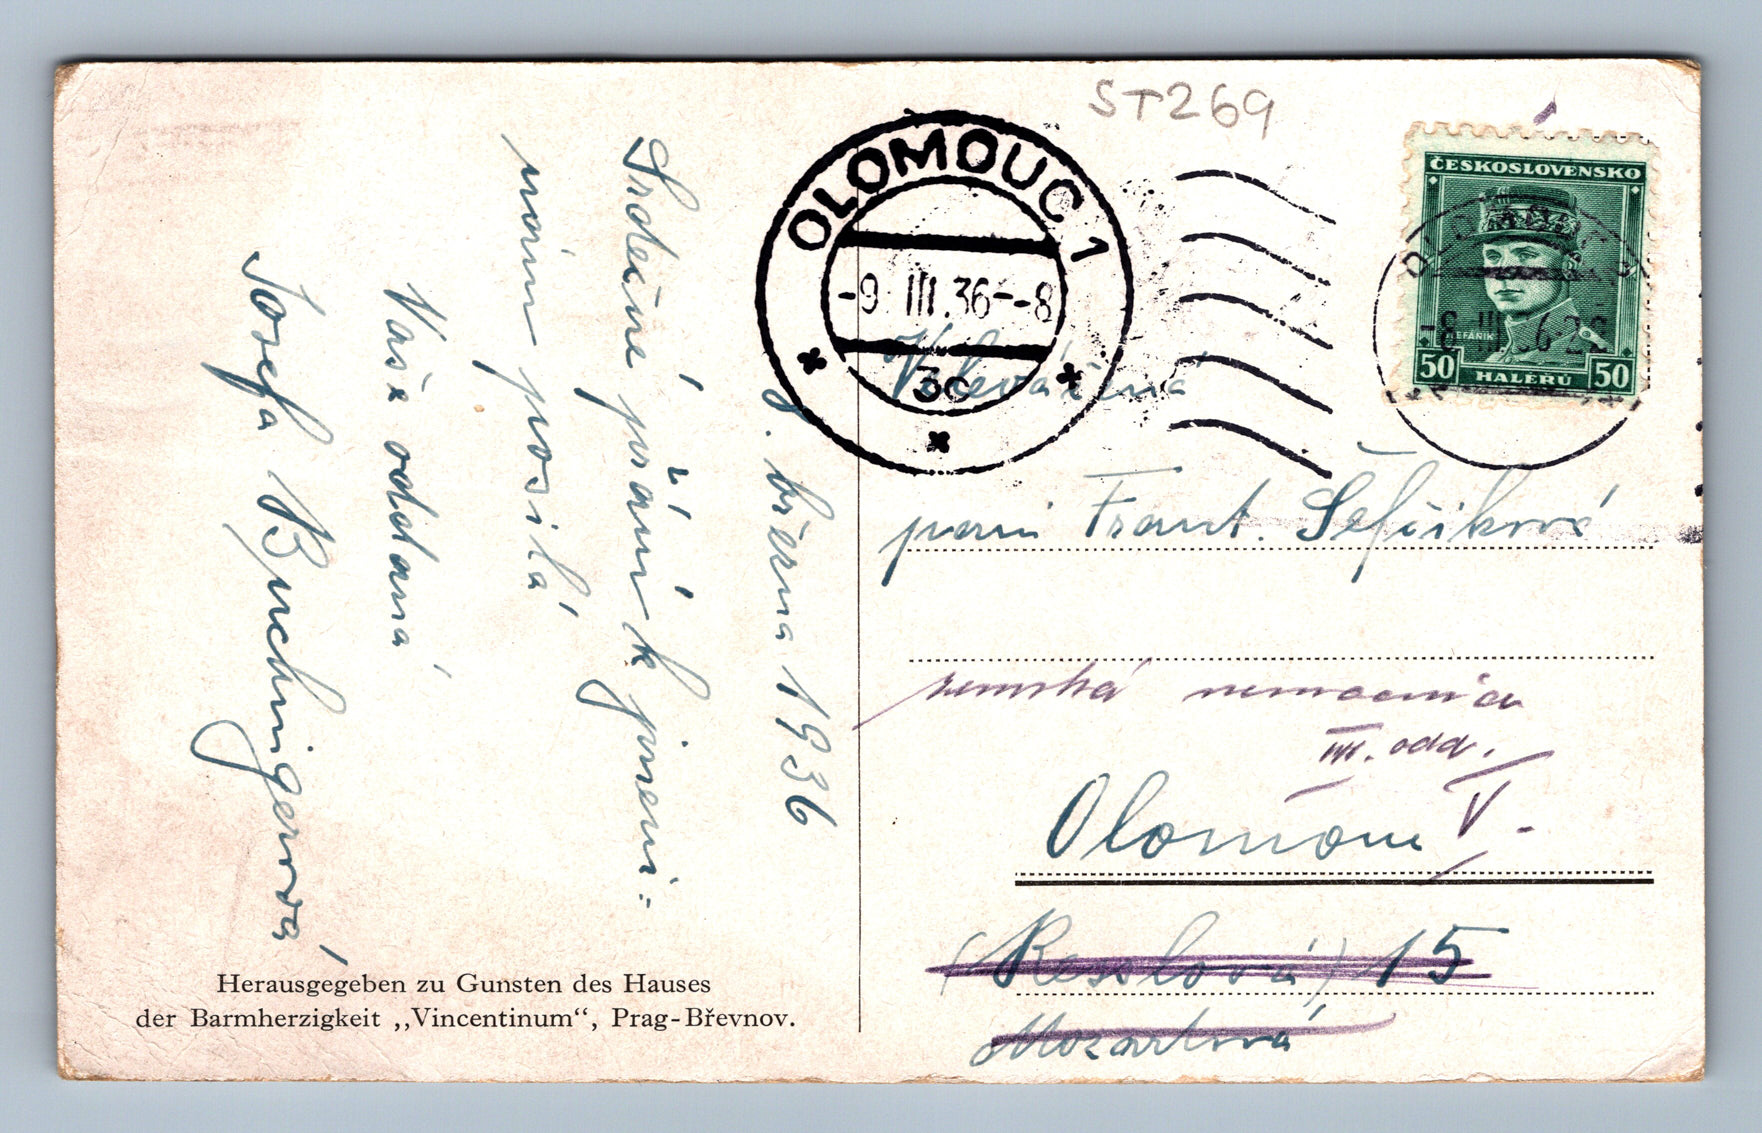 ST269
OLOMOUC 1
-9 III.36--8
3c
ČESKOSLOVENSKO
ŠTEFÁNIK
50 HALÉRŮ 50
OLOMOUC
-8 III 36-
8. března 1936
Srdečné přání k jmeni-
nám posílá
Vaše oddaná
Josefa Buchingerová
Velevážená
paní Frant. Šefčiková
zemská nemocnica
III. odd.
Olomouc V.
(Resslova) 15
Mozartova
Herausgegeben zu Gunsten des Hauses
der Barmherzigkeit ,,Vincentinum“, Prag-Břevnov.